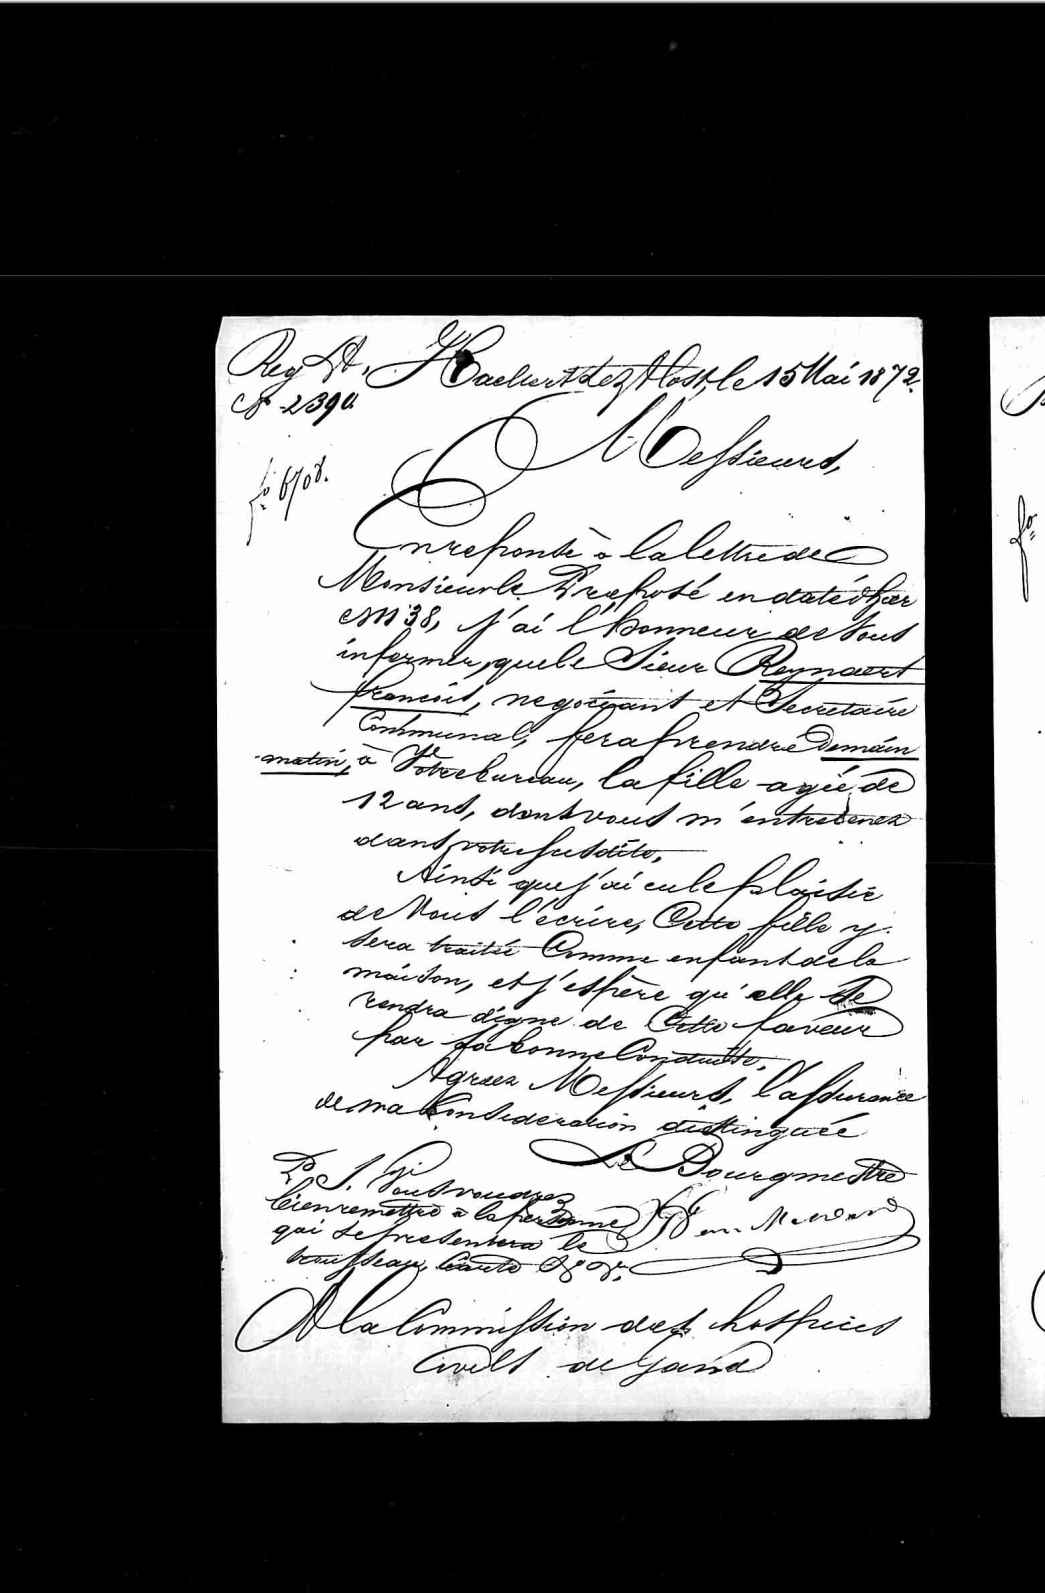 Reg A, Haeltert lez Alost, le 15 Mai 1872.
N° 2390.
Messieurs,
f° 6708.
En reponse à la lettre de
Monsieur le Préposé en date d'hier
N° 38, j'ai l'honneur de Vous
informer, que le Sieur Reynaert
françois, negociant et Secretaire
Communal, fera prendre Demain
matin, à Votre bureau, la fille agée de
12 ans, dont vous m'entretenez
dans votre susdite.
Ainsi que j'ai eu le plaisir
de Vous l'écrire, Cette fille y
sera traitée Comme enfant de la
maison, et j'espère qu'elle se
rendra digne de Cette faveur
par sa bonne Conduitte.
Agreez Messieurs, l'assurance
de ma Consideration distinguée
Le Bourgmestre
P. S. Vous voudrez
bien remettre à la personne
qui se presentera le
trousseau,
A la Commission des hospices
Civils de Gand